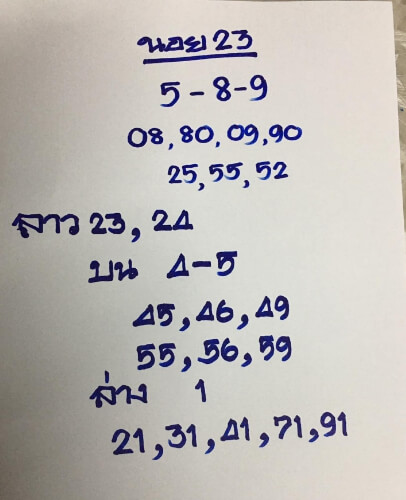 นอย 23
5 - 8 - 9
08, 80, 09, 90
25, 55, 52
ลาว 23, 24
บน 4 - 5
45, 46, 49
55, 56, 59
ล่าง 1
21, 31, 41, 71, 91